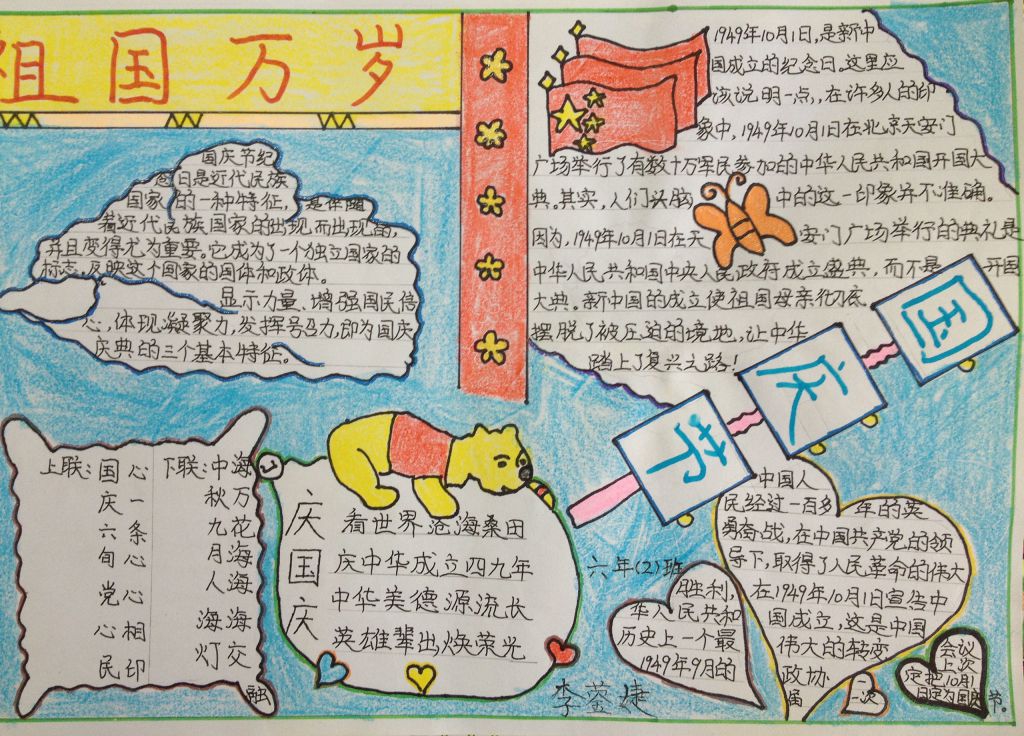 祖国万岁
国庆节纪
念日是近代民族
国家的一种特征,是伴随
着近代民族国家的出现而出现的,
并且变得尤为重要。它成为了一个独立国家的
标志,反映这个国家的国体和政体。
显示力量、增强国民信
心,体现凝聚力,发挥号召力,即为国庆
庆典的三个基本特征。
1949年10月1日,是新中
国成立的纪念日。这里应
该说明一点,,在许多人的印
象中,1949年10月1日在北京天安门
广场举行了有数十万军民参加的中华人民共和国开国大
典。其实,人们头脑中的这一印象并不准确。
因为,1949年10月1日在天安门广场举行的典礼是
中华人民共和国中央人民政府成立盛典,而不是开国
大典。新中国的成立使祖国母亲彻底
摆脱了被压迫的境地,让中华
踏上了复兴之路!
国庆节
上联:国庆六旬党心民
心一条心心相印
下联:中秋九月人海灯
海万花海海海交
融
庆国庆
看世界沧海桑田
庆中华成立四九年
中华美德源流长
英雄辈出焕荣光
六年(2)班
李莹婕
中国人
民经过一百多年的英
勇奋战,在中国共产党的领
导下,取得了人民革命的伟大
胜利,在1949年10月1日宣告中
华人民共和国成立,这是中国
历史上一个最伟大的转变
1949年9月的政协
届一次
会议
上次
定把10月1
日定为国庆节。